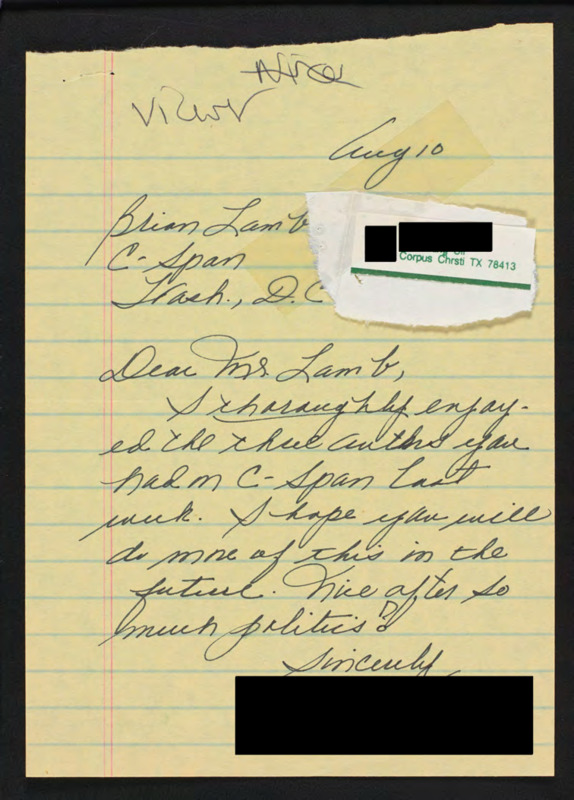 Nice
Viewer
Aug 10
Brian Lamb
C-Span
Wash., D.C
Corpus Chrsti TX 78413
Dear Mr. Lamb,
I thoroughly enjoy-
ed the three authors you
had on C-Span last
week. I hope you will
do more of this in the
future. Nice after so
much politics!
Sincerely,